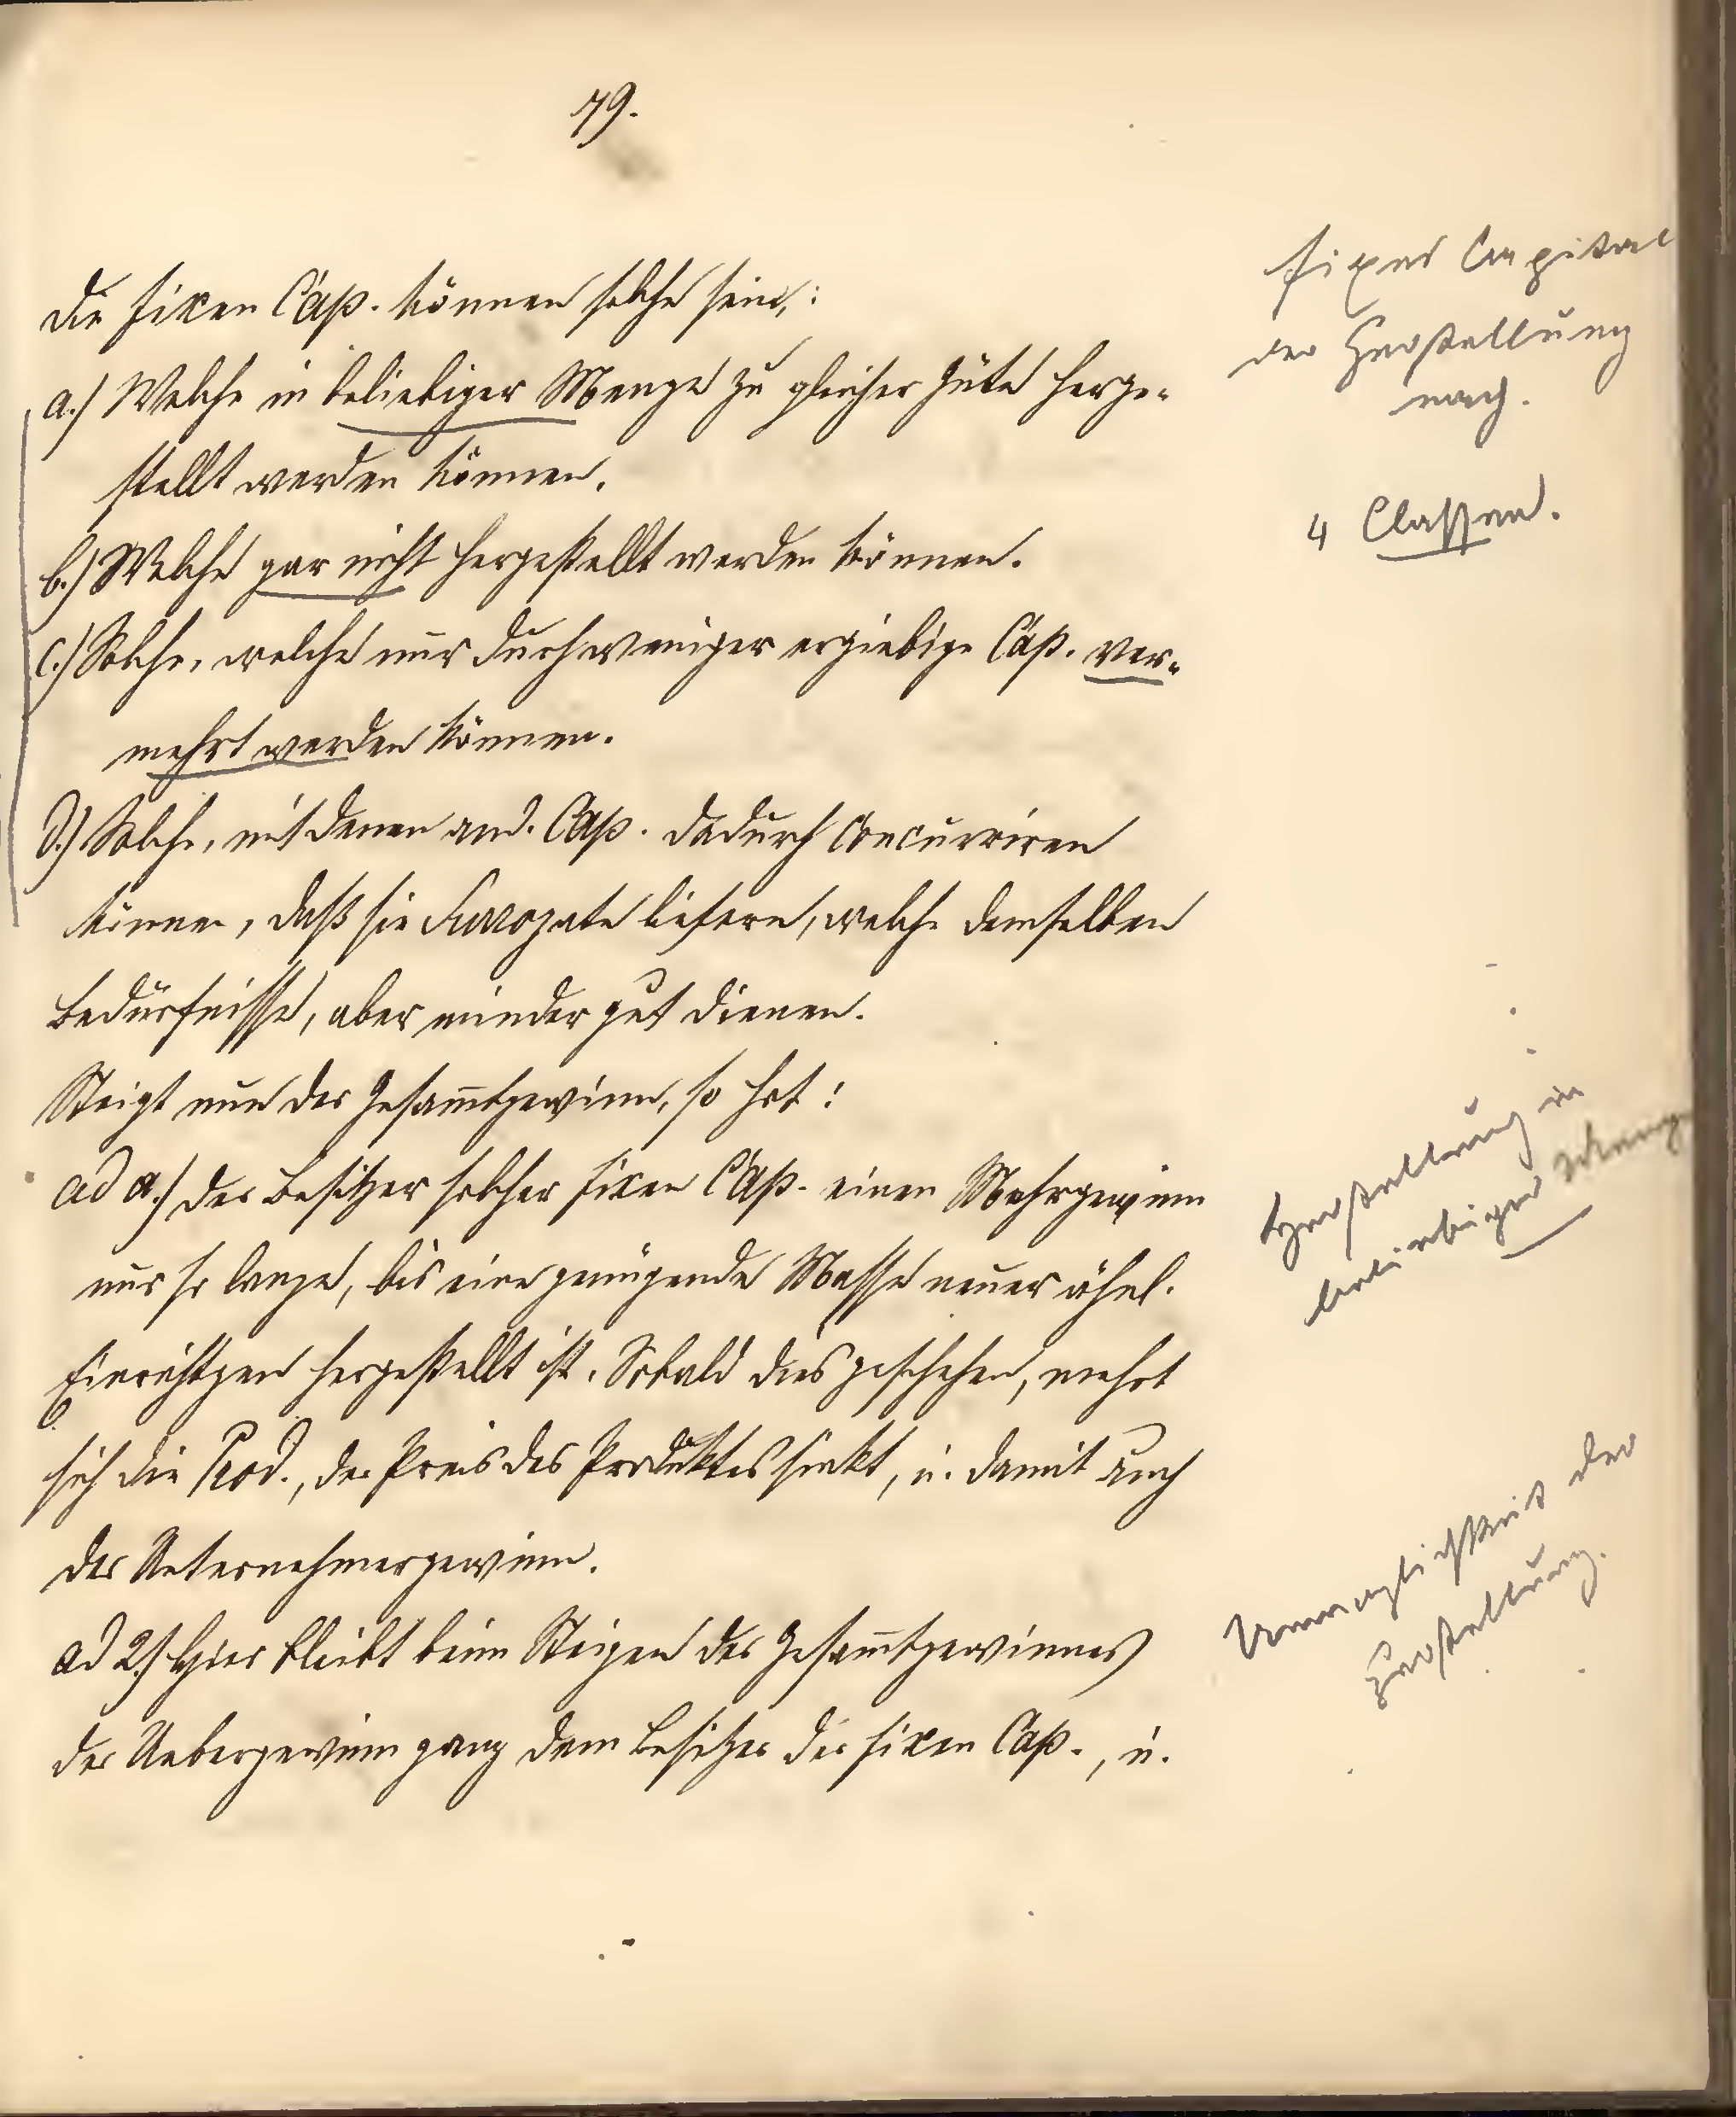 79.
Die fixen Cap. können solche sein,:
a.) Welche in beliebiger Menge zu gleicher Güte herge-
stellt werden können.
b.) Welche gar nicht hergestellt werden können.
c.) Solche, welche nur durch weniger ergiebige Cap. ver-
mehrt werden können.
d.) Solche, mit denen and. Cap. dadurch concurriren
können, daß sie Surrogate liefern, welche demselben
Bedürfnisse, aber minder gut dienen.
Steigt nun der Gesam̄tgewinn, so hat:
ad a.) der Besitzer solcher fixen Cap. einen Mehrgewinn
nur so lange, bis eine genügende Masse neuer ähnl.
Einrichtgen hergestellt ist. Sobald dies geschehen, mehrt
sich die Prod., der Preis des Produktes sinkt, u. damit auch
der Unternehmergewinn.
ad 2.) Hier bleibt beim Steigen des Gesam̄tgewinnes
der Uebergewinn ganz dem Besitzer der fixen Cap., u.
fixes Capital
der Herstellung
nach.
4 Classen.
Herstellung in
beliebiger Menge
Unmöglichkeit der
Herstellung.